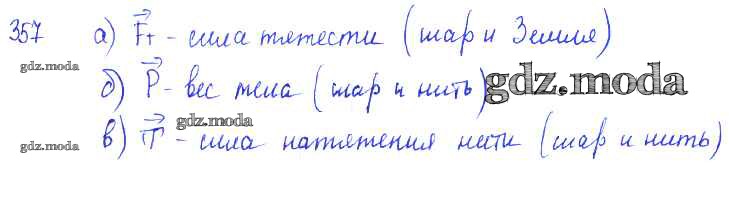 357 а) F⃗т - сила тяжести (шар и Земля)
gdz.moda
б) P⃗ - вес тела (шар и нить)
gdz.moda
gdz.moda
в) T⃗ - сила натяжения нити (шар и нить)
gdz.moda